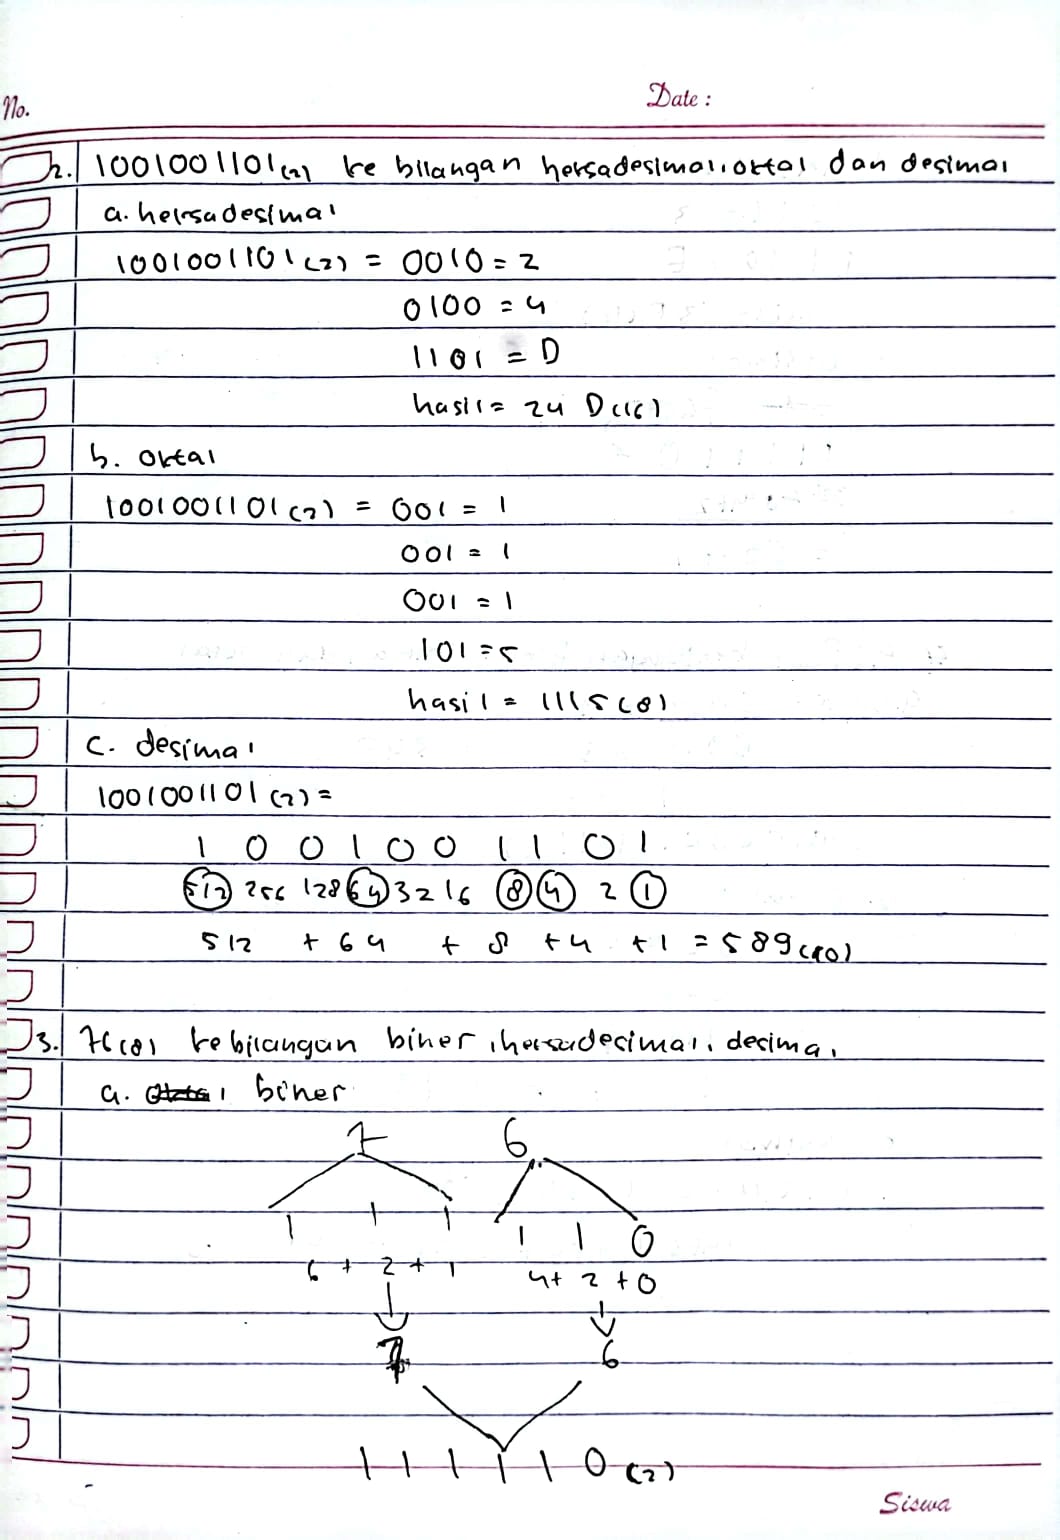 No.
Date :
2. 1001001101(2) ke bilangan heksadesimal, oktal dan desimal
a. heksadesimal
1001001101(2) = 0010 = 2
0100 = 4
1101 = D
hasil = 24 D(16)
b. Oktal
1001001101(2) = 001 = 1
001 = 1
001 = 1
101 = 5
hasil = 1115(8)
c. desimal
1001001101(2) =
1 0 0 1 0 0 1 1 0 1
512 256 128 64 32 16 8 4 2 1
512 + 64 + 8 + 4 + 1 = 589(10)
3. 76(8) ke bilangan biner, heksadesimal, desimal
a. biner
7 6
1 1 1 1 1 0
6 + 2 + 1 4 + 2 + 0
7 6
1 1 1 1 1 0 (2)
Siswa